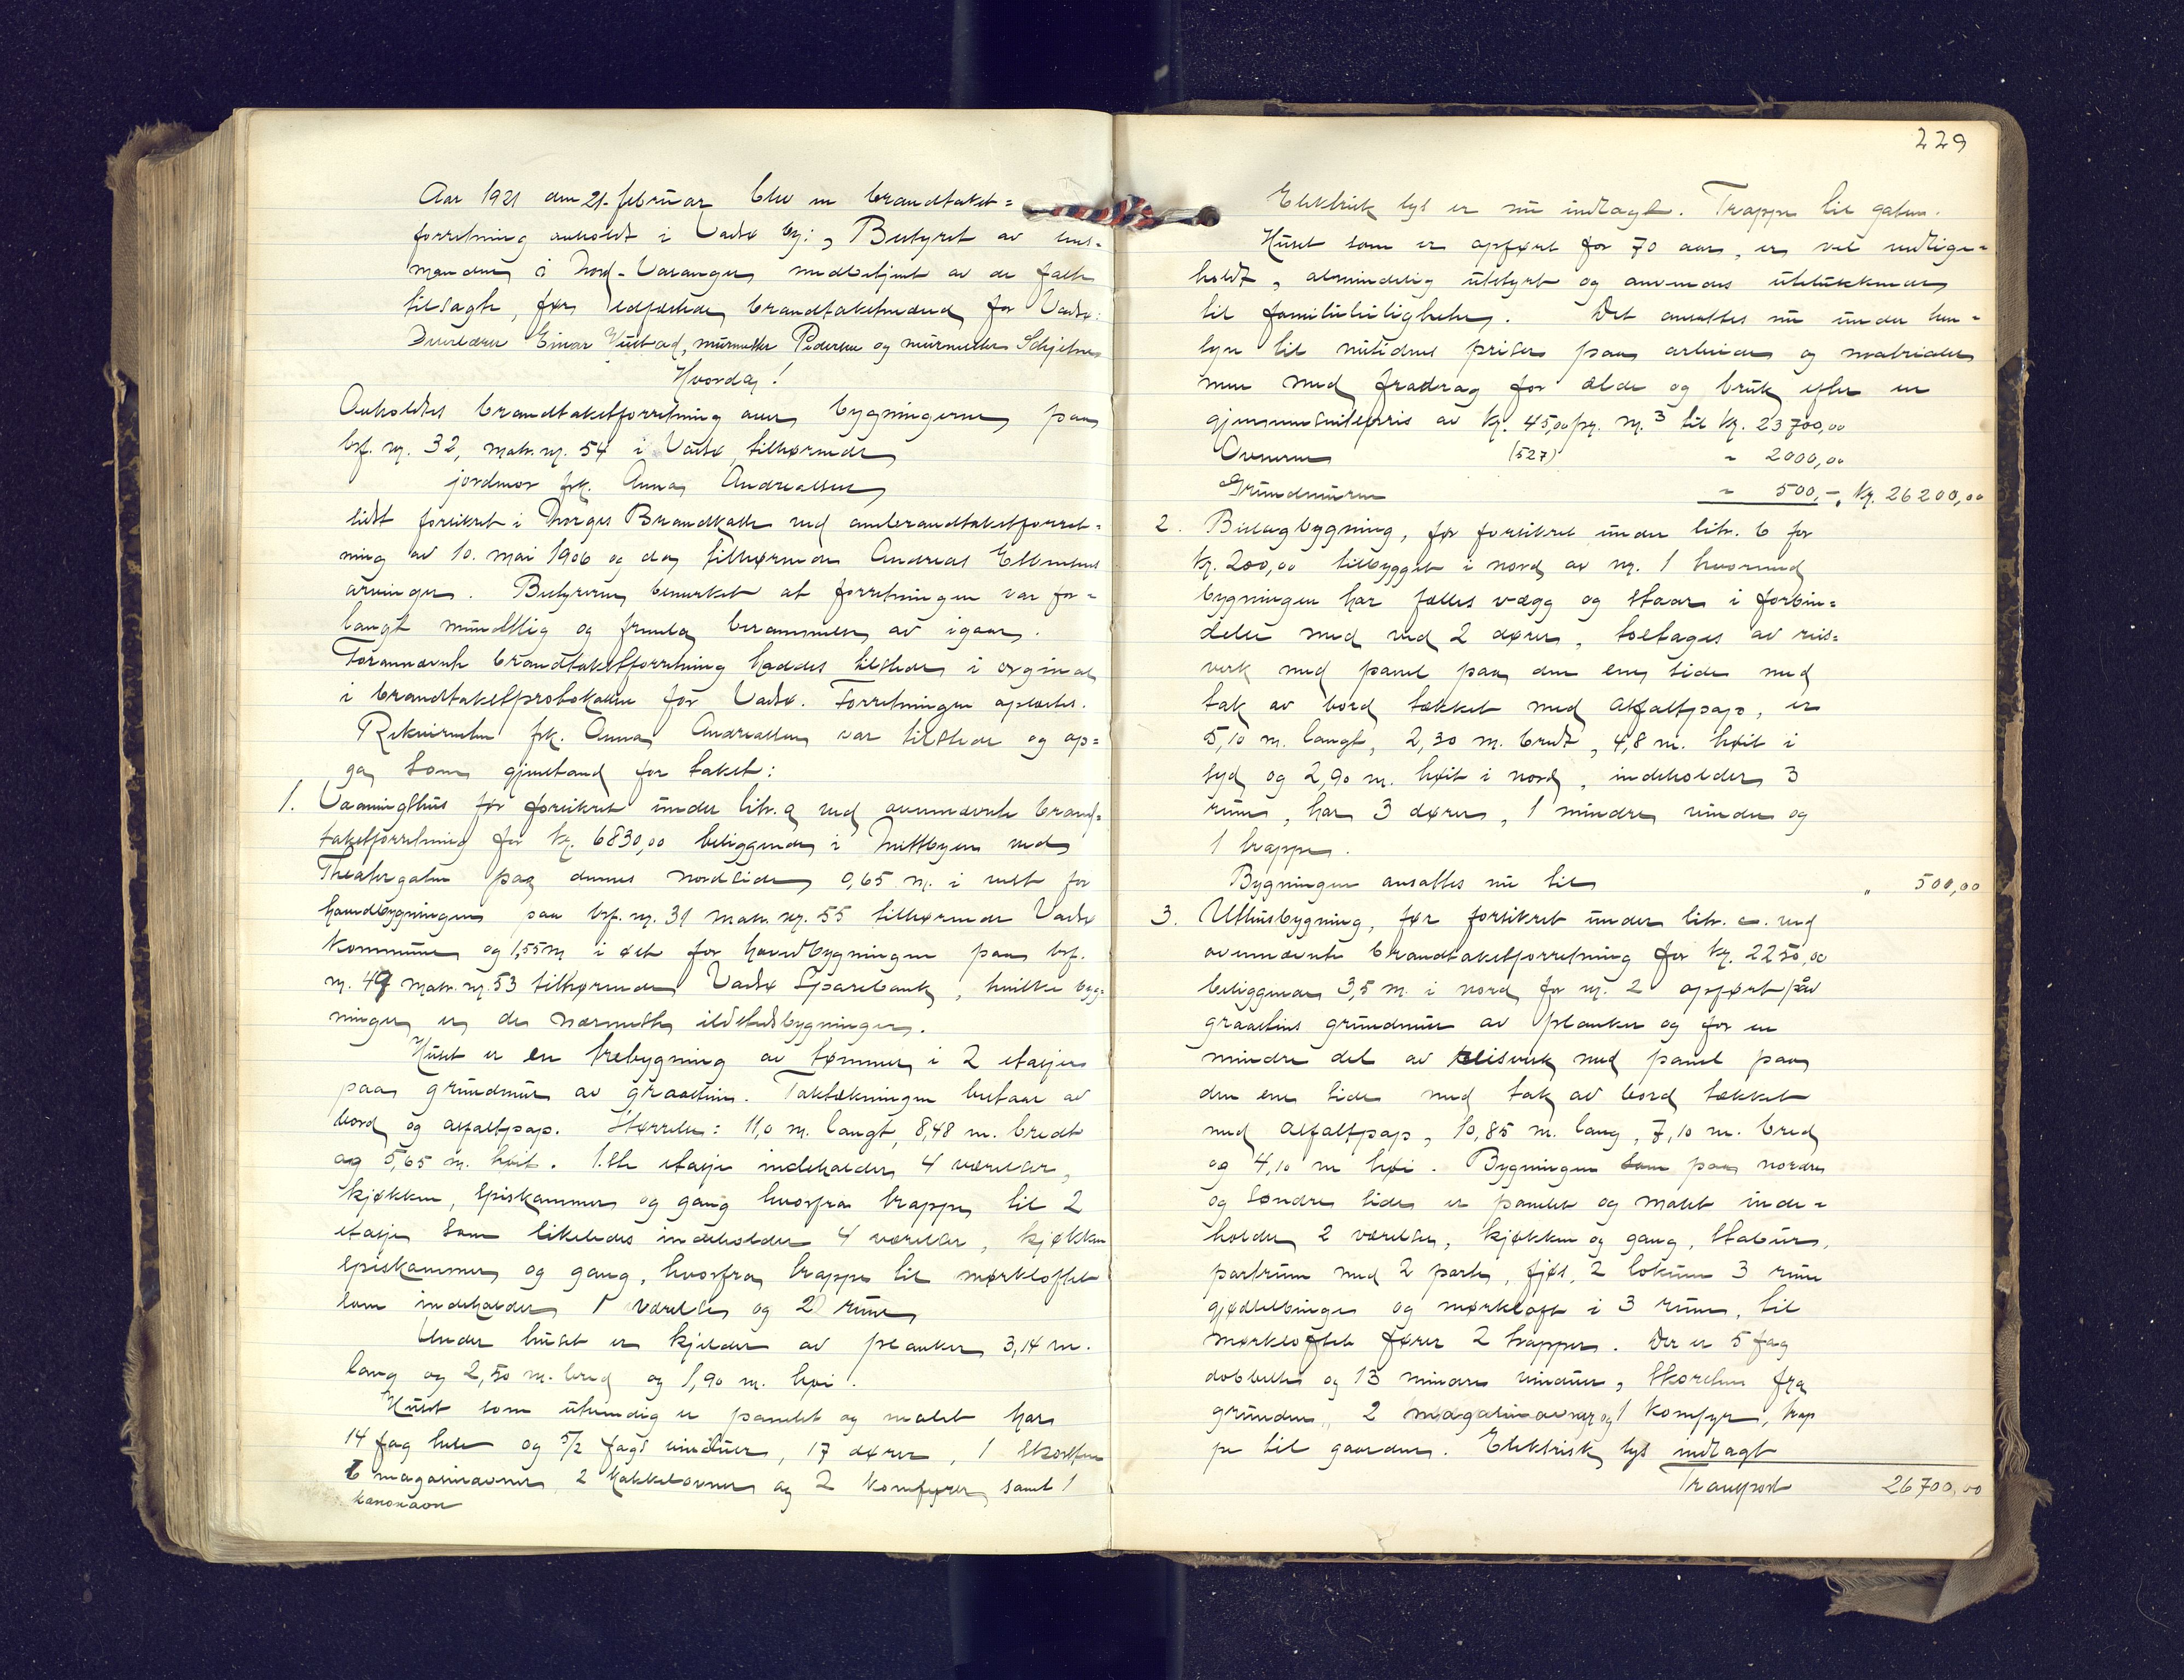 Aar 1921 den 21. februar blev en brandtakst=
forretning avholdt i Vadsø by: Bestyret av lens=
manden i Nord-Varanger medbetjent av de faste
tilsagte, før edfæstede brandtakstmænd for Vadsø:
Einar Hustad, murmester Pedersen og murmester Schjelnes
Hvorda!
Avholdtes brandtakstforretning over bygningerne paa
brf. nr. 32, matr. nr. 54 i Vadsø, tilhørende
jordmor frk. Anna Andreassen
sidst forsikret i Norges Brandkasse ved ombrandtakstforret=
ning av 10. mai 1906 og da tilhørende Andreas Esbensens
arvinger. Bestyreren bemerket at forretningen var for=
langt mundtlig og berammelse av igaar.
Forannævnte brandtakstforretning haddes tilstede i orginal
i brandtakstprotokollen for Vadsø. Forretningen oplæstes.
Rekvirenten frk. Anna Andreassen var tilstede og op=
ga som gjenstand for takst:
1. Vaaningshus før forsikret under litr. a ved ovennævnte brand=
takstforretning for kr. 6830,00 beliggende i Midtbyen ved
Theatergaten paa dennes nordside, 0,65 m. i vest for
hovedbygningen paa brf. nr. 31 matr. nr. 55 tilhørende Vadsø
Kommune og 1,55 m i øst for hovedbygningen paa brf.
nr. 47 matr. nr. 53 tilhørende Vadsø Sparebank, hvilke byg=
ninger er de nærmeste ildstedsbygninger.
Huset er en træbygning av tømmer i 2 etasjer
paa grundmur av graasten. Taktækningen bestaar av
bord og asfaltpap. Størrelse: 11,0 m. langt, 8,48 m. bredt
og 5,65 m. høit. 1.ste etasje indeholder 4 værelser,
kjøkken, spiskammer og gang hvorfra trappe til 2
etasje som likeledes indeholder 4 værelser, kjøkken
spiskammer og gang, hvorfra trappe til mørkloftet
som indeholder 1 værelse og 2 rum
Under huset er kjelder av planker, 3,14 m.
lang og 2,50 m. bred og 1,90 m. høi.
Huset som utvendig er panelet og malet har
14 fag hele og 5/2 fags vinduer, 17 dører, 1 skorsten
6 magasinovner, 2 kakkelovner og 2 komfyrer, samt 1
kanonovn
229
Elektrisk lys er nu indlagt. Trappe til gaten.
Huset som er opført for 70 aar, er vel vedlige=
holdt, almindelig utstyrt og anvendes utelukkende
til familieleiligheter. Det ansattes nu under hen=
syn til nutidens priser paa arbeide og matrialer
men med fradrag for ælde og bruk efter en
gjennemsnitspris av kr. 45,00 pr. m.3 til kr. 23700,00
Ovnerne (527) " 2000,00
Grundmuren " 500,-, kr. 26200,00
2. Bislagbygning, før forsikret under litr. b for
kr. 200,00 tilbygget i nord av nr. 1 hvormed
bygningen har fælles vægg og staar i forbin=
delse med ved 2 dører, toetages av reis=
verk med panel paa den ene side med
tak av bord tækket med asfaltpap, er
5,10 m. langt, 2,30 m. bredt, 4,8 m. høit i
syd og 2,90 m. høit i nord, indeholder 3
rum, har 3 dører, 1 mindre vindu og
1 trappe.
Bygningen ansattes nu til " 500,00
3. Uthusbygning, før forsikret under litr. c. ved
ovennævnte brandtakstforretning for kr. 2250,00
beliggende 3,5 m. i nord for nr. 2 opført paa
graastens grundmur av planker og for en
mindre del av reisverk med panel paa
den ene side med tak av bord tækket
med asfaltpap, 10,85 m. lang, 7,10 m. bred
og 4,10 m høi. Bygningen som paa nordre
og søndre side er panelet og malet inde=
holder 2 værelser, kjøkken og gang, stabur,
partrum med 2 parter, fjøs, 2 lokum 3 rum
gjødselbinge og mørkloft i 3 rum, til
mørkloftet fører 2 trapper. Der er 5 fag
dobbelte og 13 mindre vinduer, skorsten fra
grunden, 2 magasinovner og 1 komfyr, trap
pe til gaarden. Elektrisk lys indlagt
Transport 26700,00